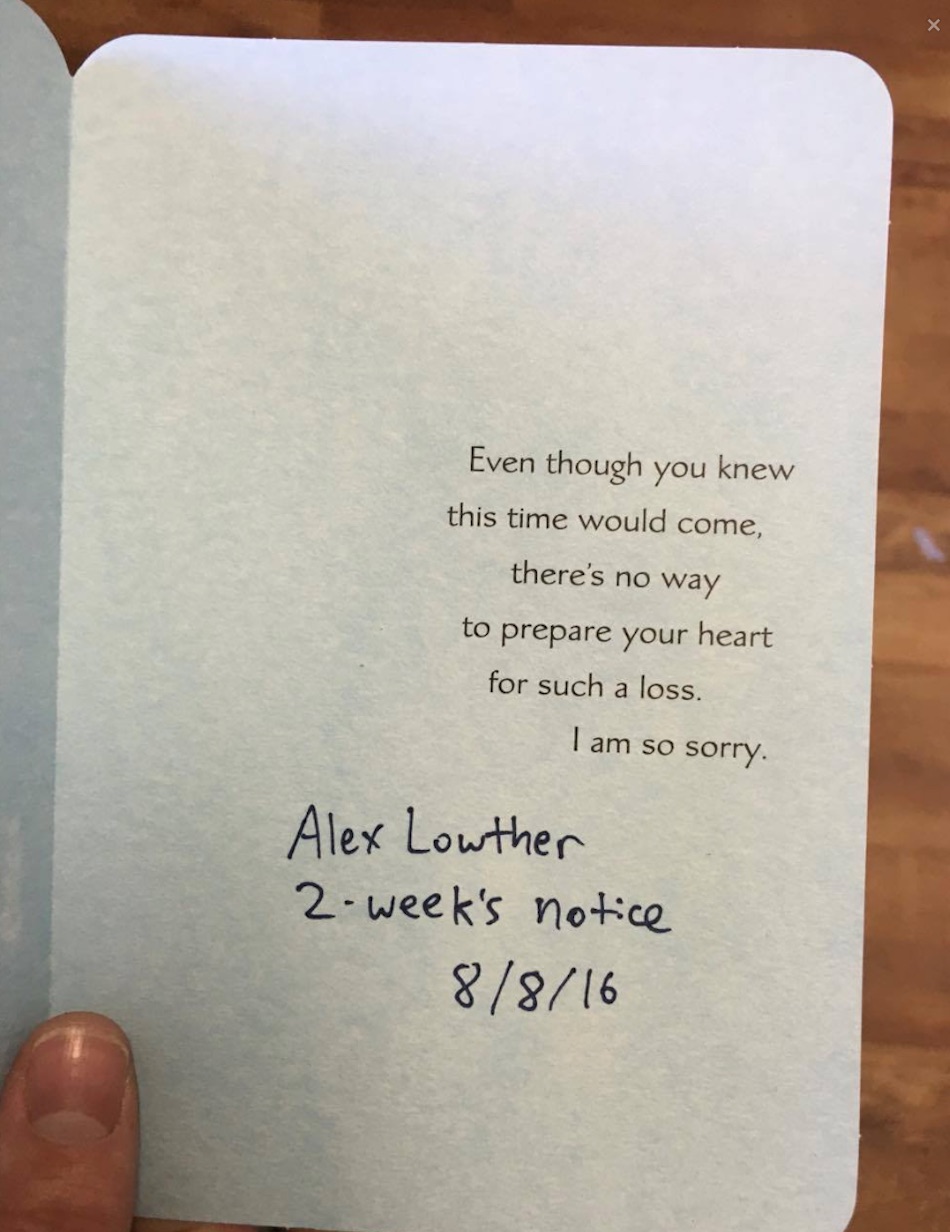 Even though you knew
this time would come,
there's no way
to prepare your heart
for such a loss.
I am so sorry.
Alex Lowther
2-week's notice
8/8/16